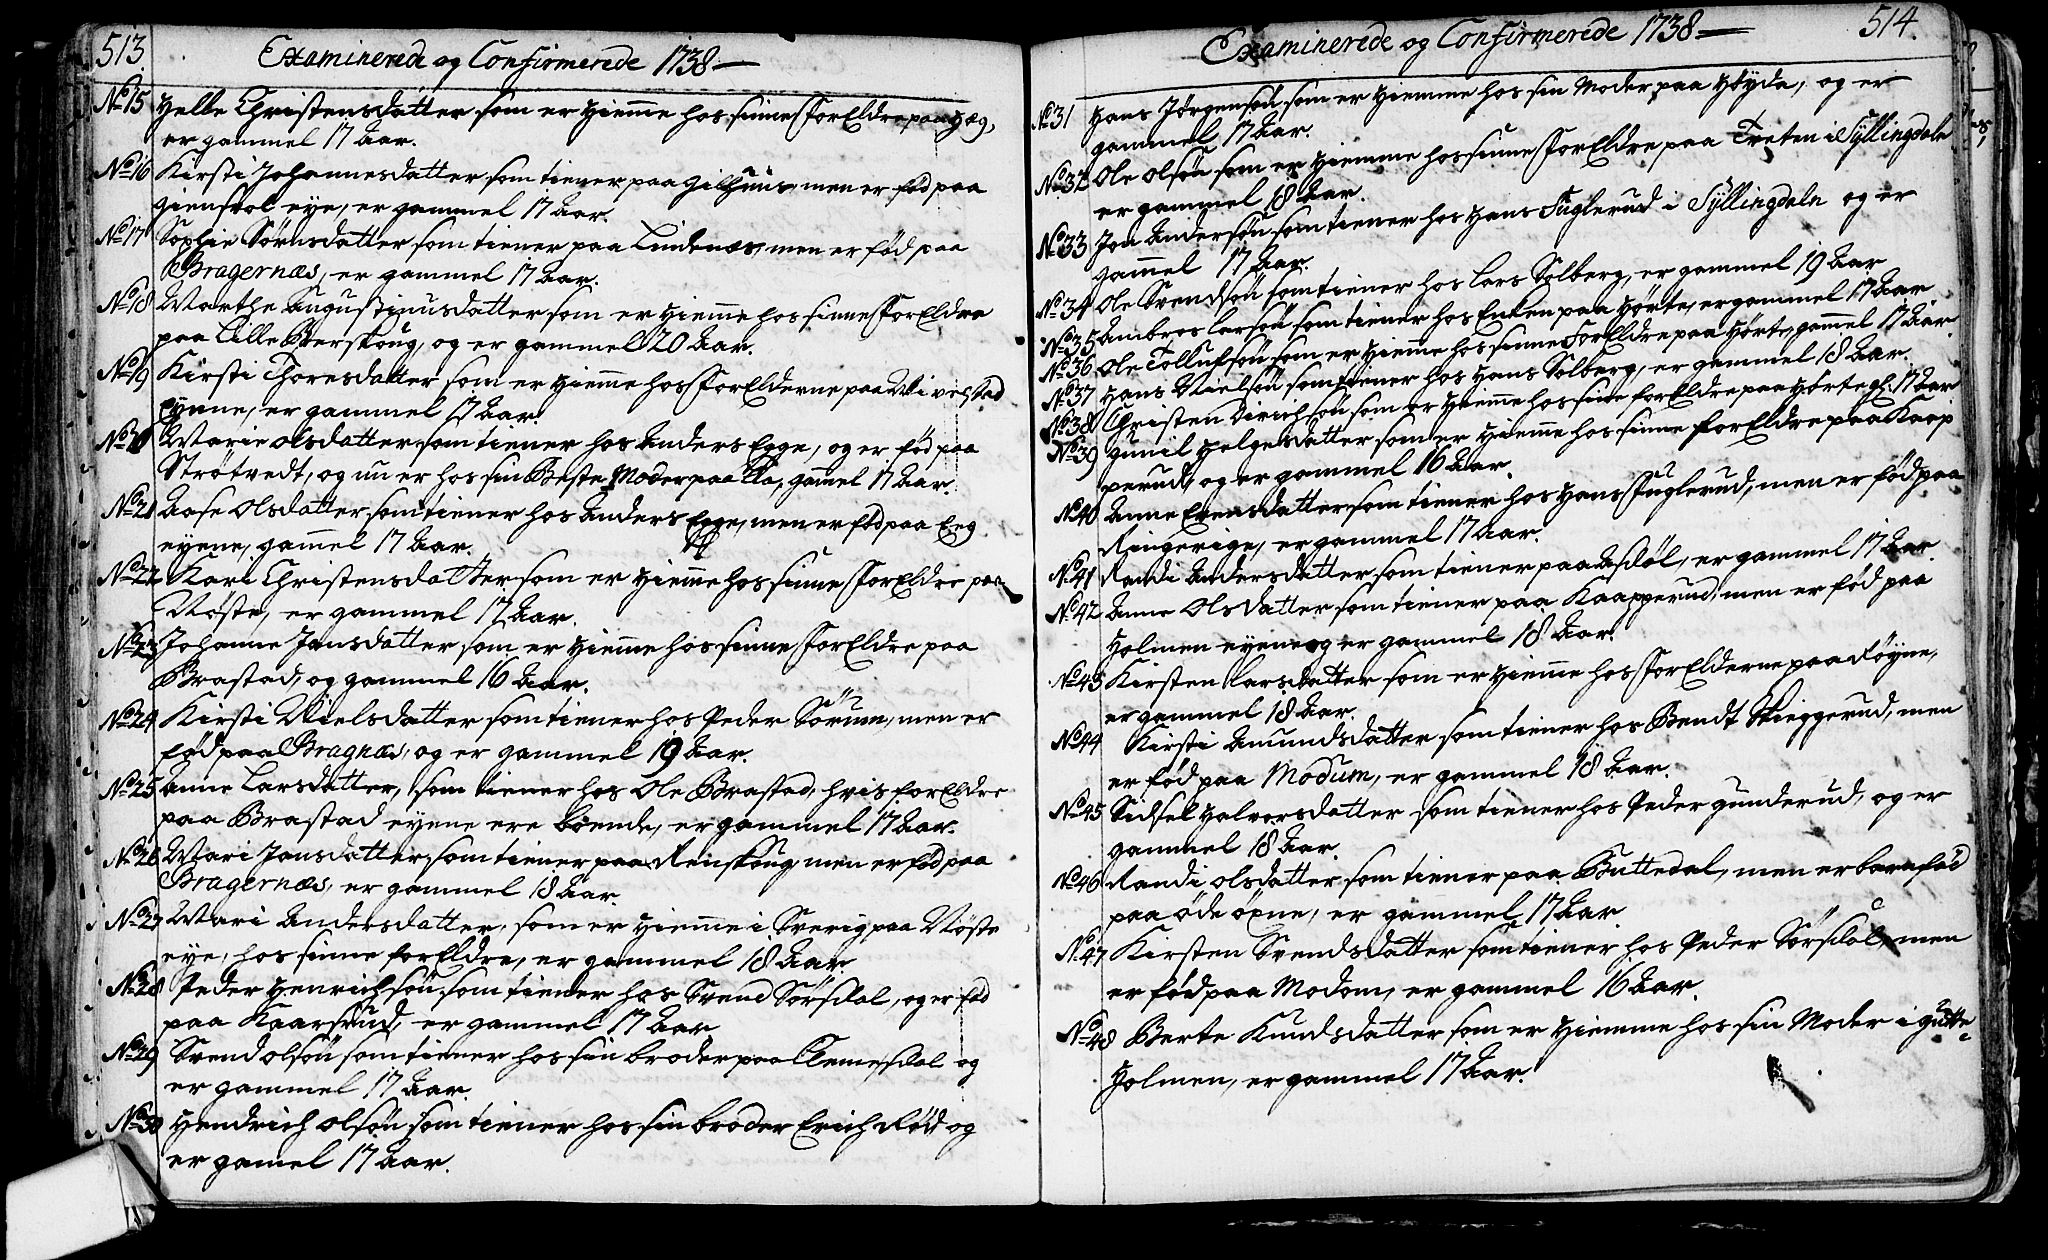 513.
Examinerede og Confirmerede 1738
No 15 Helle Christensdatter som er Hieme hos sinne ForEldre paa Hæg,
er gammel 17 Aar.
No 16 Kirsti Johannesdatter som tiener paa Gilhuus men er fød paa
Gienskol eye, er gammel 17 Aar.
No 17 Sophie Sørnsdatter som tiener paa Lindenæs, men er fød paa
Bragernæs, er gammel 17 Aar.
No 18 Marthe Augustinusdatter som er Hieme hos sinne ForEldre
paa Lille Bverskoug, og er gammel 20 Aar.
No 19 Kirsti Thoresdatter som er Hieme hos ForElderne paa Mivelstad
Eyene, er gammel 17 Aar.
No 20 Marie Olsdatter som tiener hos Anders Egge, og er fød paa
Strøtvedt, og nu er hos sin Beste Moder paa Lia, gamel 17 Aar.
No 21 Aase Olsdatter som tiener hos Anders Egge, men er fød paa Eeg
eyene, gamel 17 Aar.
No 22 Kari Christensdatter som er Hieme hos sinne ForEldre paa
Nøste, er gammel 17 Aar.
No 23 Johanne Jansdatter som er Hieme hos sinne ForEldre paa
Brastad, og gammel 16 Aar.
No 24 Kirsti Nielsdatter som tiener hos Peder Sørum, men er
fød paa Bragnæs, og er gammel 19 Aar.
No 25 Anne Larsdatter, som tiener hos Ole Brastad, hvis forEldre
paa Brastad eyene ere boende, er gammel 17 Aar.
No 26 Mari Jansdatter, som tiener paa Reinskoug men er fød paa
Bragernæs, er gammel 18 Aar
No 27 Mari Andersdatter, som er Hieme i Sverig paa Nøste
eye, hos sinne forEldre, er gammel 18 Aar.
No 28 Peder Henrichsøn som tiener hos Svend Sørsdal, og er fød
paa Kaarsrud, er gammel 17 Aar
No 29 Svend Olsøn som tiener hos sin broder paa Clemesdal og
er gammel 17 Aar.
No 30 Hendrich Olsøn som tiener hos sin broder Erich Rød og
er gamel 17 Aar.
514.
Examinerede og Confirmerede 1738
No 31 Hans Jørgensøn som er Hiemme hos sin Moder paa Høyda, og er
gammel 17 Aar.
No 32 Ole Olsøn som er Hiemme hos sinne ForEldre paa Treten i Syllingdaln
er gammel 18 Aar.
No 33 Jon Andersøn som tiener hos Hans Fuglerud i Syllingdaln og er
gamel 17 Aar.
No 34 Ole Svendsøn som tiener hos Lars Solberg, er gammel 19 Aar
No 35 Ambros Larsøn som tiener hos Enken paa Hørte, er gammel 17 Aar
No 36 Ole Tollufsøn som er Hieme hos sinne ForElldre paa Hørte, gamel 17 Aar
No 37 Hans Nielsøn som tiener hos Hans Solberg, er gammel 18 Aar.
No 38 Christen Dirichsøn som er Hieme hos sine forEldre paa Hørte gl. 17 Aar
No 39 Gunil Helgesdatter som er Hieme hos sinne forEldre paa Kaap
perud, og er gammel 16 Aar.
No 40 Anne Evensdatter som tiener hos Hans Fuglerud, men er fød paa
Ringerige, er gammel 17 Aar.
No 41 Randi Andersdatter som tiener paa Asdøl, er gammel 17 Aar
No 42 Anne Olsdatter som tiener paa Kaapperud, men er fød paa
Holmen eyene og er gammel 18 Aar.
No 43 Kirsten Larsdatter som er Hieme hos ForElderne paa Røyne,
er gammel 18 Aar.
No 44 Kirsti Amundsdatter som tiener hos Bendt Skieggerud, men
er fød paa Modum, er gammel 18 Aar.
No 45 Sidsel Halvorsdatter som tiener hos Peder Gunderud, og er
gammel 18 Aar.
No 46 Randi Olsdatter som tiener paa Buttedal, men er barnfød
paa øde øxne, er gammel 17 Aar
No 47 Kirsten Svendsdatter som tiener hos Peder Sørsdal, men
er fød paa Modom, er gammel 16 Aar.
No 48 Berte Knudsdatter som er Hiemme hos sin Moder i Gutte
Holmen, er gammel 17 Aar.